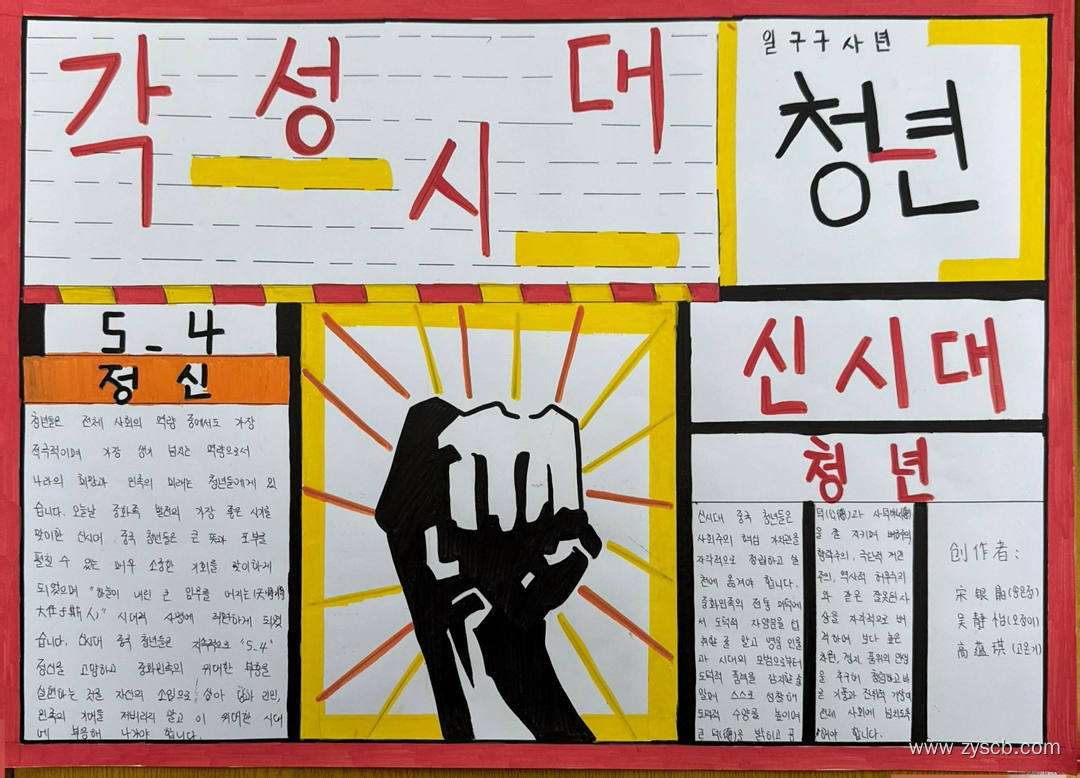 각성
시대
일구구사년
청년
5-4
정신
청년들은 전체 사회의 역량 중에서도 가장
적극적이며 가장 생기 넘치는 역량으로서
나라의 희망과 민족의 미래는 청년들에게 있
습니다. 오늘날 중화족 발전의 가장 좋은 시기를
맞이한 신시대 중국 청년들은 큰 뜻과 포부를
펼칠 수 있는 매우 소중한 기회를 맞이하게
되었으며 "하늘이 내린 큰 임무를 어지는(天将降
大任于斯人)" 시대적 사명에 직면하게 되었
습니다. 신시대 중국 청년들은 지속적으로 "5.4"
정신을 고양하고 중화민족의 위대한 부흥을
실현하는 것을 자신의 소임으로 삼아 당과 인민,
민족의 기대를 저버리지 않고 이 위대한 시대
에 부응해 나가야 합니다.
신시대
청년
신시대 중국 청년들은
사회주의 핵심 가치관을
자각적으로 정립하고 실
천에 옮겨야 합니다.
중화민족의 전통 미덕에
서 도덕적 자양분을 섭
취할 줄 알고 영웅 인물
과 시대의 모범으로부터
도덕적 품격을 감지할 줄
알며 스스로 성찰해
도덕적 수양을 높이며
큰 덕(德)을 밝히고 공
덕(公德)과 사덕(私德)
을 잘 지키며 배금
향락주의, 극단적 개인
주의, 역사적 허무주의
와 같은 잘못된 사
상을 자각적으로 배
격하여 보다 높은
차원, 정지, 품위의 인생
을 추구하 청렴하고 바
른 기풍과 진취적 기상이
전체 사회에 넘치도록
해야 합니다.
创作者:
宋银 (송은정)
吴静怡(오정이)
高蕴琪(고온기)
www.zyscb.com